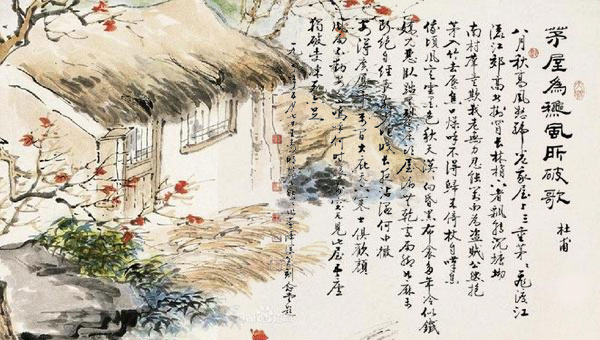 茅屋為穐風所破歌
杜甫
八月秋高風怒號卷我屋上三重茅茅飛渡江
灑江郊高者掛罥長林梢下者飄轉沉塘坳
南村群童欺我老無力忍能對面為盜賊公然抱
茅入竹去唇焦口燥呼不得歸來倚杖自嘆息
俄頃風定雲墨色秋天漠漠向昏黑布衾多年冷似鐵
嬌兒惡臥踏裏裂床頭屋漏無乾處雨腳如麻未
斷絕自經喪亂少睡眠長夜沾濕何由徹
安得廣廈千萬間大庇天下寒士俱歡顏
風雨不動安如山嗚呼何時眼前突兀見此屋吾廬
獨破受凍死亦足